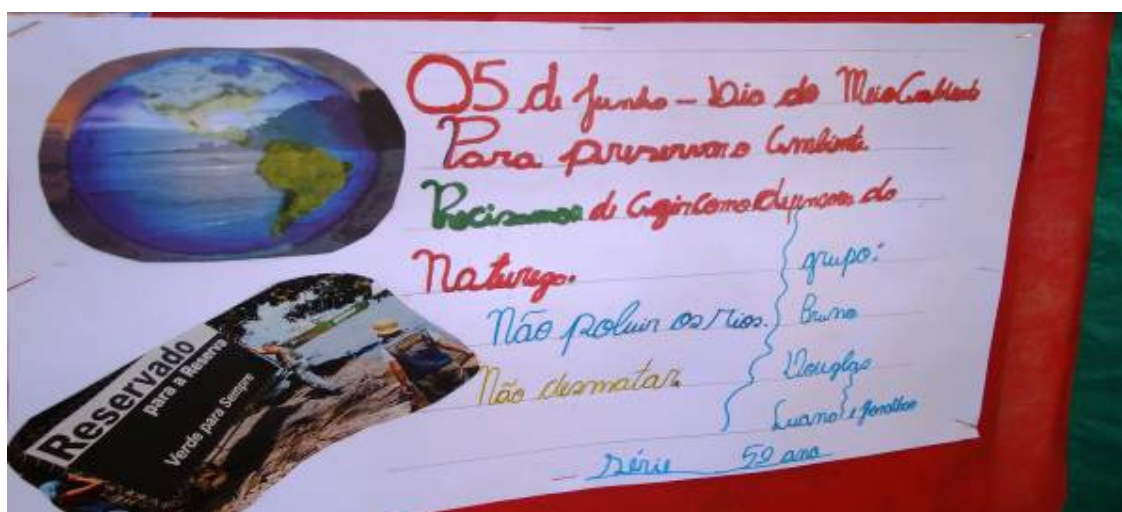 05 de Junho – Dia do Meio Ambiente
Para preservar o Ambiente
Precisamos de Agir como defensores da
Natureza.
Não poluir os rios.
Não desmatar.
grupo:
Bruno
Douglas
Luano e Jonathan
Série 5º ano
Reservado
para a Reserva
Verde para Sempre